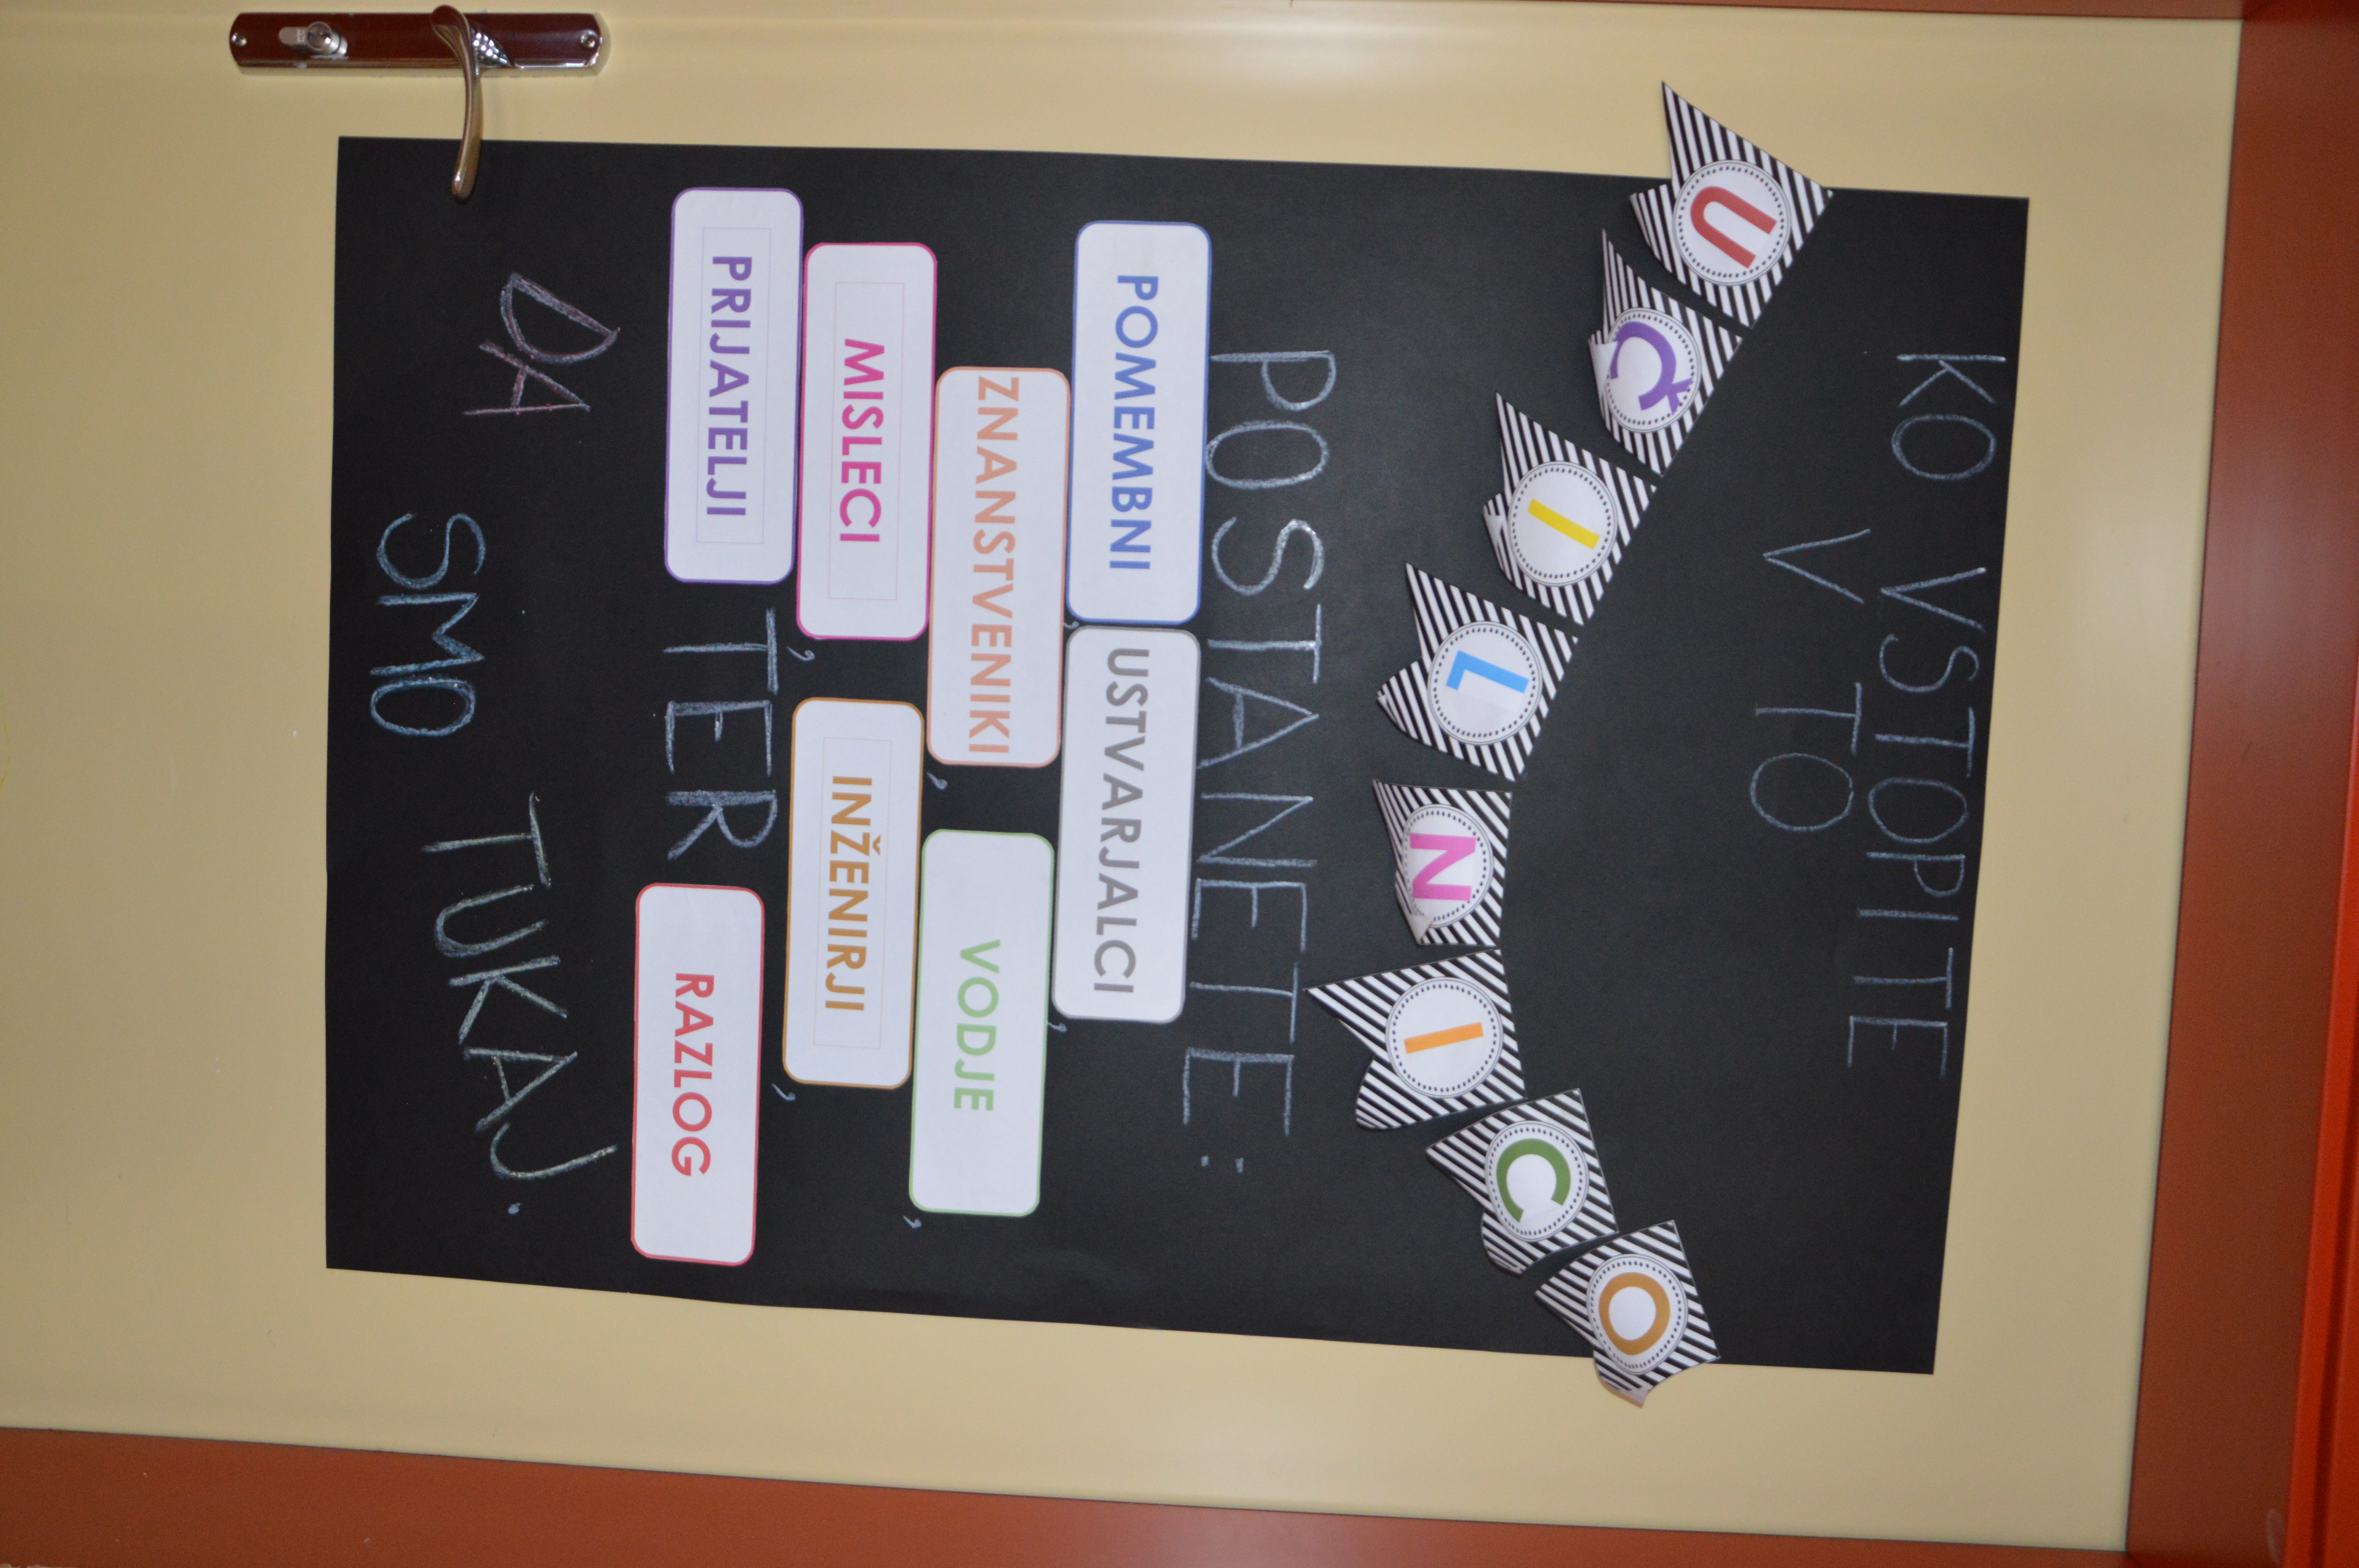 KO VSTOPITE
V TO
UČILNICO
POSTANETE:
POMEMBNI, USTVARJALCI,
ZNANSTVENIKI, VODJE,
MISLECI, INŽENIRJI,
PRIJATELJI TER RAZLOG
DA SMO TUKAJ.